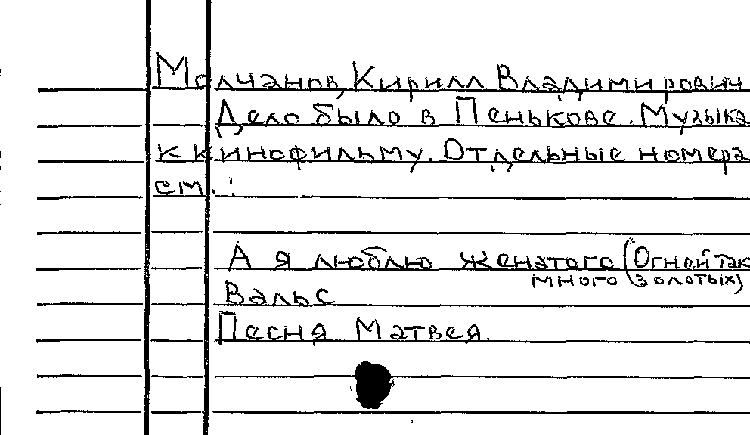 Молчанов, Кирилл Владимирович
Дело было в Пенькове. Музыка
к кинофильму. Отдельные номера
см. :
А я люблю женатого (Огней так
много золотых)
Вальс
Песня Матвея